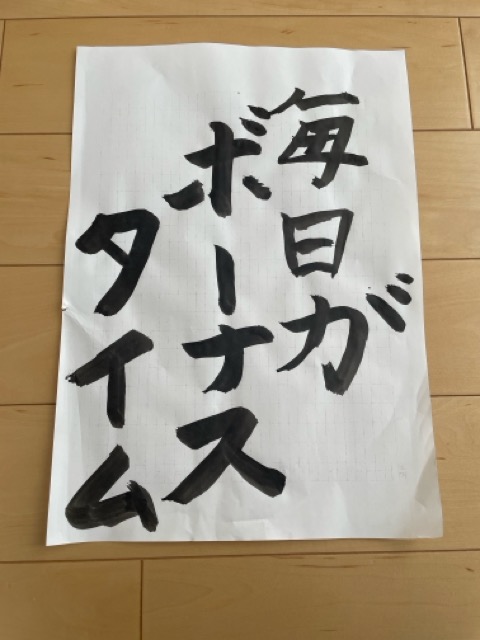 毎日が
ボーナス
タイム